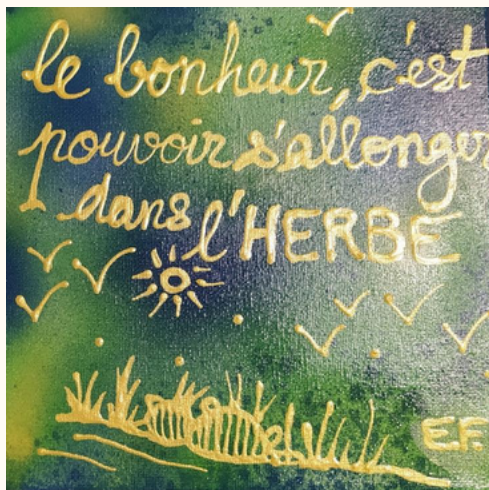 le bonheur, c'est
pouvoir s'allonger
dans l'HERBE
E.F.